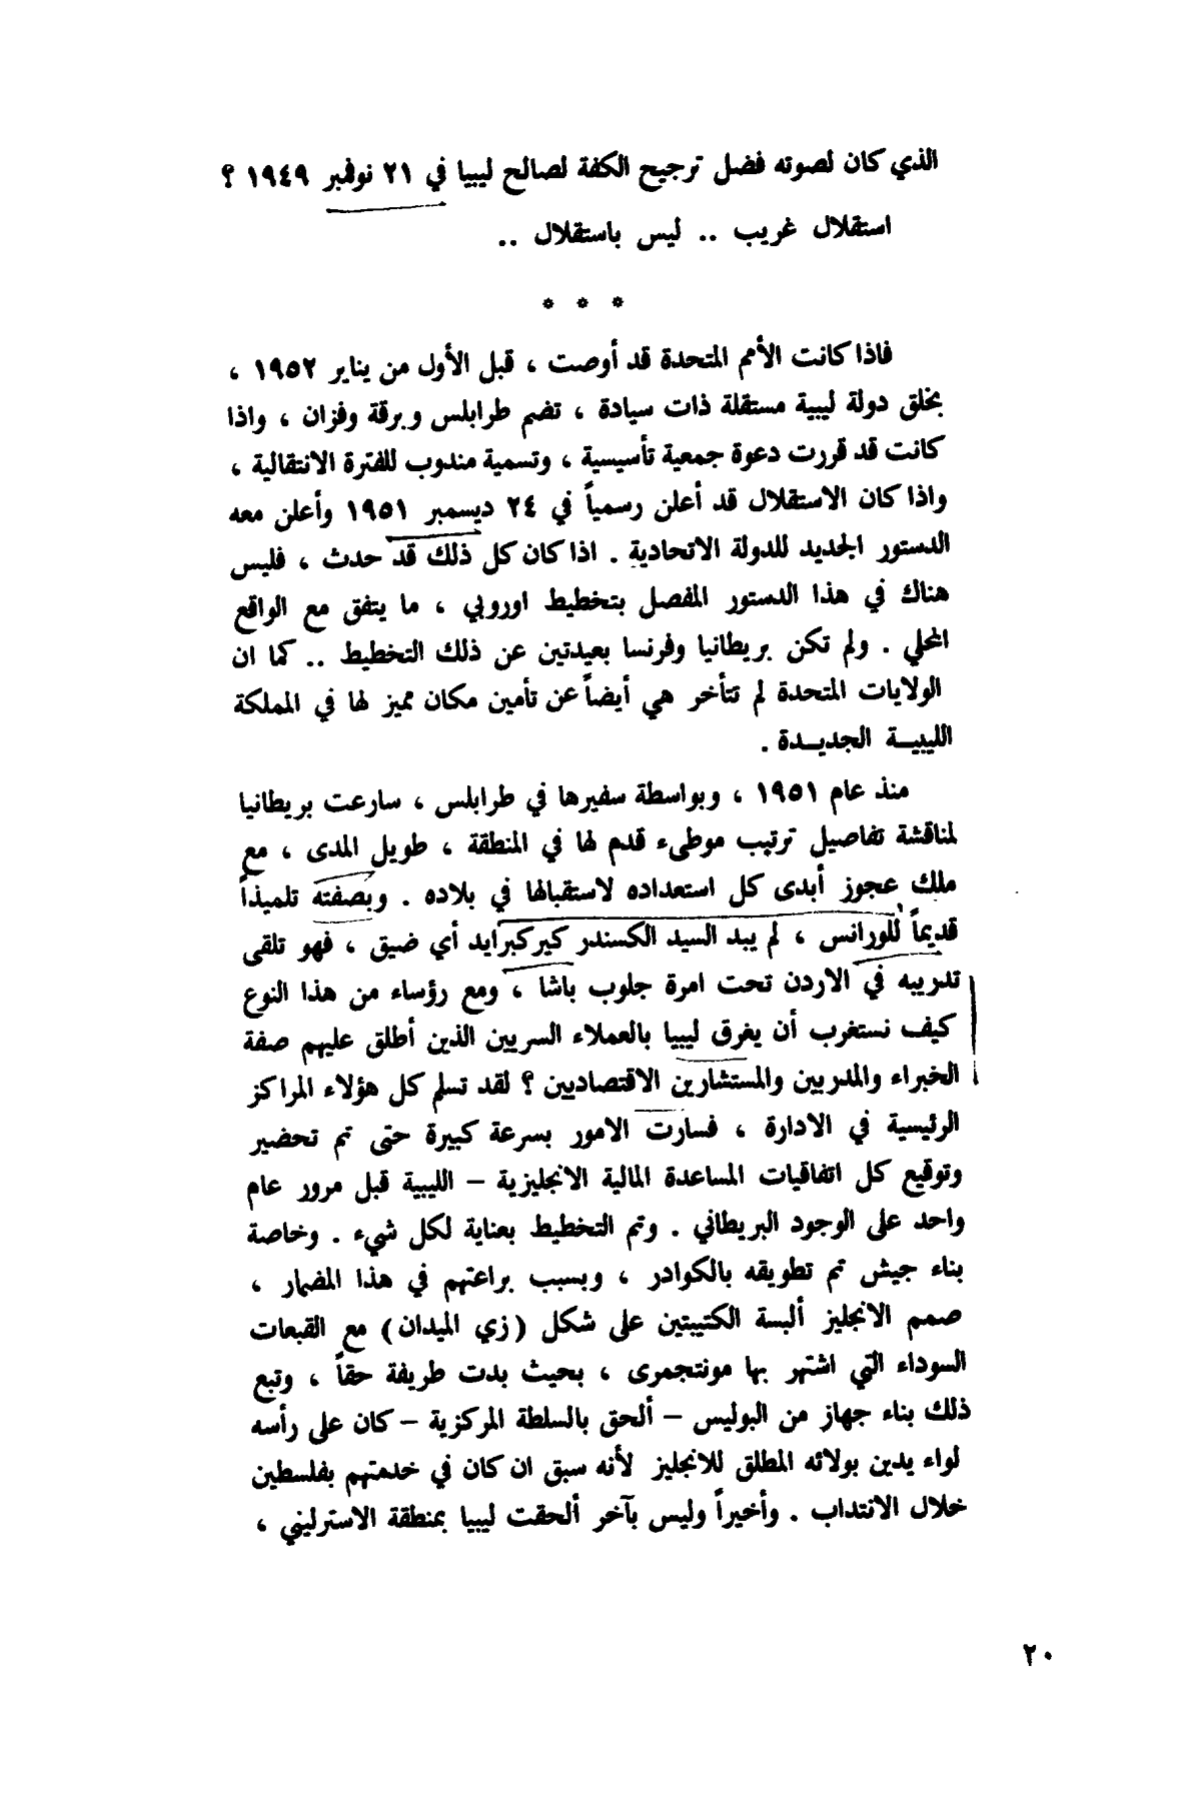 الذي كان لصوته فضل ترجيح الكفة لصالح ليبيا في ٢١ نوفمبر ١٩٤٩ ؟
استقلال غريب .. ليس باستقلال ..
* * *
فاذا كانت الأمم المتحدة قد أوصت ، قبل الأول من يناير ١٩٥٢ ،
بخلق دولة ليبية مستقلة ذات سيادة ، تضم طرابلس وبرقة وفزان ، واذا
كانت قد قررت دعوة جمعية تأسيسية ، وتسمية مندوب للفترة الانتقالية ،
واذا كان الاستقلال قد أعلن رسمياً في ٢٤ ديسمبر ١٩٥١ وأعلن معه
الدستور الجديد للدولة الاتحادية . اذا كان كل ذلك قد حدث ، فليس
هناك في هذا الدستور المفصل بتخطيط اوروبي ، ما يتفق مع الواقع
المحلي . ولم تكن بريطانيا وفرنسا بعيدتين عن ذلك التخطيط .. كما ان
الولايات المتحدة لم تتأخر هي أيضاً عن تأمين مكان مميز لها في المملكة
الليبيـة الجديـدة .
منذ عام ١٩٥١ ، وبواسطة سفيرها في طرابلس ، سارعت بريطانيا
لمناقشة تفاصيل ترتيب موطىء قدم لها في المنطقة ، طويل المدى ، مع
ملك عجوز أبدى كل استعداده لاستقبالها في بلاده . وبصفته تلميذاً
قديماً للورانس ، لم يبد السيد الكسندر كيركبرايد أي ضيق ، فهو تلقى
تدريبه في الاردن تحت امرة جلوب باشا ، ومع رؤساء من هذا النوع
كيف نستغرب أن يغرق ليبيا بالعملاء السريين الذين أطلق عليهم صفة
الخبراء والمدربين والمستشارين الاقتصاديين ؟ لقد تسلم كل هؤلاء المراكز
الرئيسية في الادارة ، فسارت الامور بسرعة كبيرة حتى تم تحضير
وتوقيع كل اتفاقيات المساعدة المالية الانجليزية – الليبية قبل مرور عام
واحد على الوجود البريطاني . وتم التخطيط بعناية لكل شيء . وخاصة
بناء جيش تم تطويقه بالكوادر ، وبسبب براعتهم في هذا المضمار ،
صمم الانجليز ألبسة الكتيبتين على شكل (زي الميدان) مع القبعات
السوداء التي اشتهر بها مونتجمرى ، بحيث بدت طريفة حقاً ، وتبع
ذلك بناء جهاز من البوليس – ألحق بالسلطة المركزية – كان على رأسه
لواء يدين بولائه المطلق للانجليز لأنه سبق ان كان في خدمتهم بفلسطين
خلال الانتداب . وأخيراً وليس بآخر ألحقت ليبيا بمنطقة الاسترليني ،
٢٠